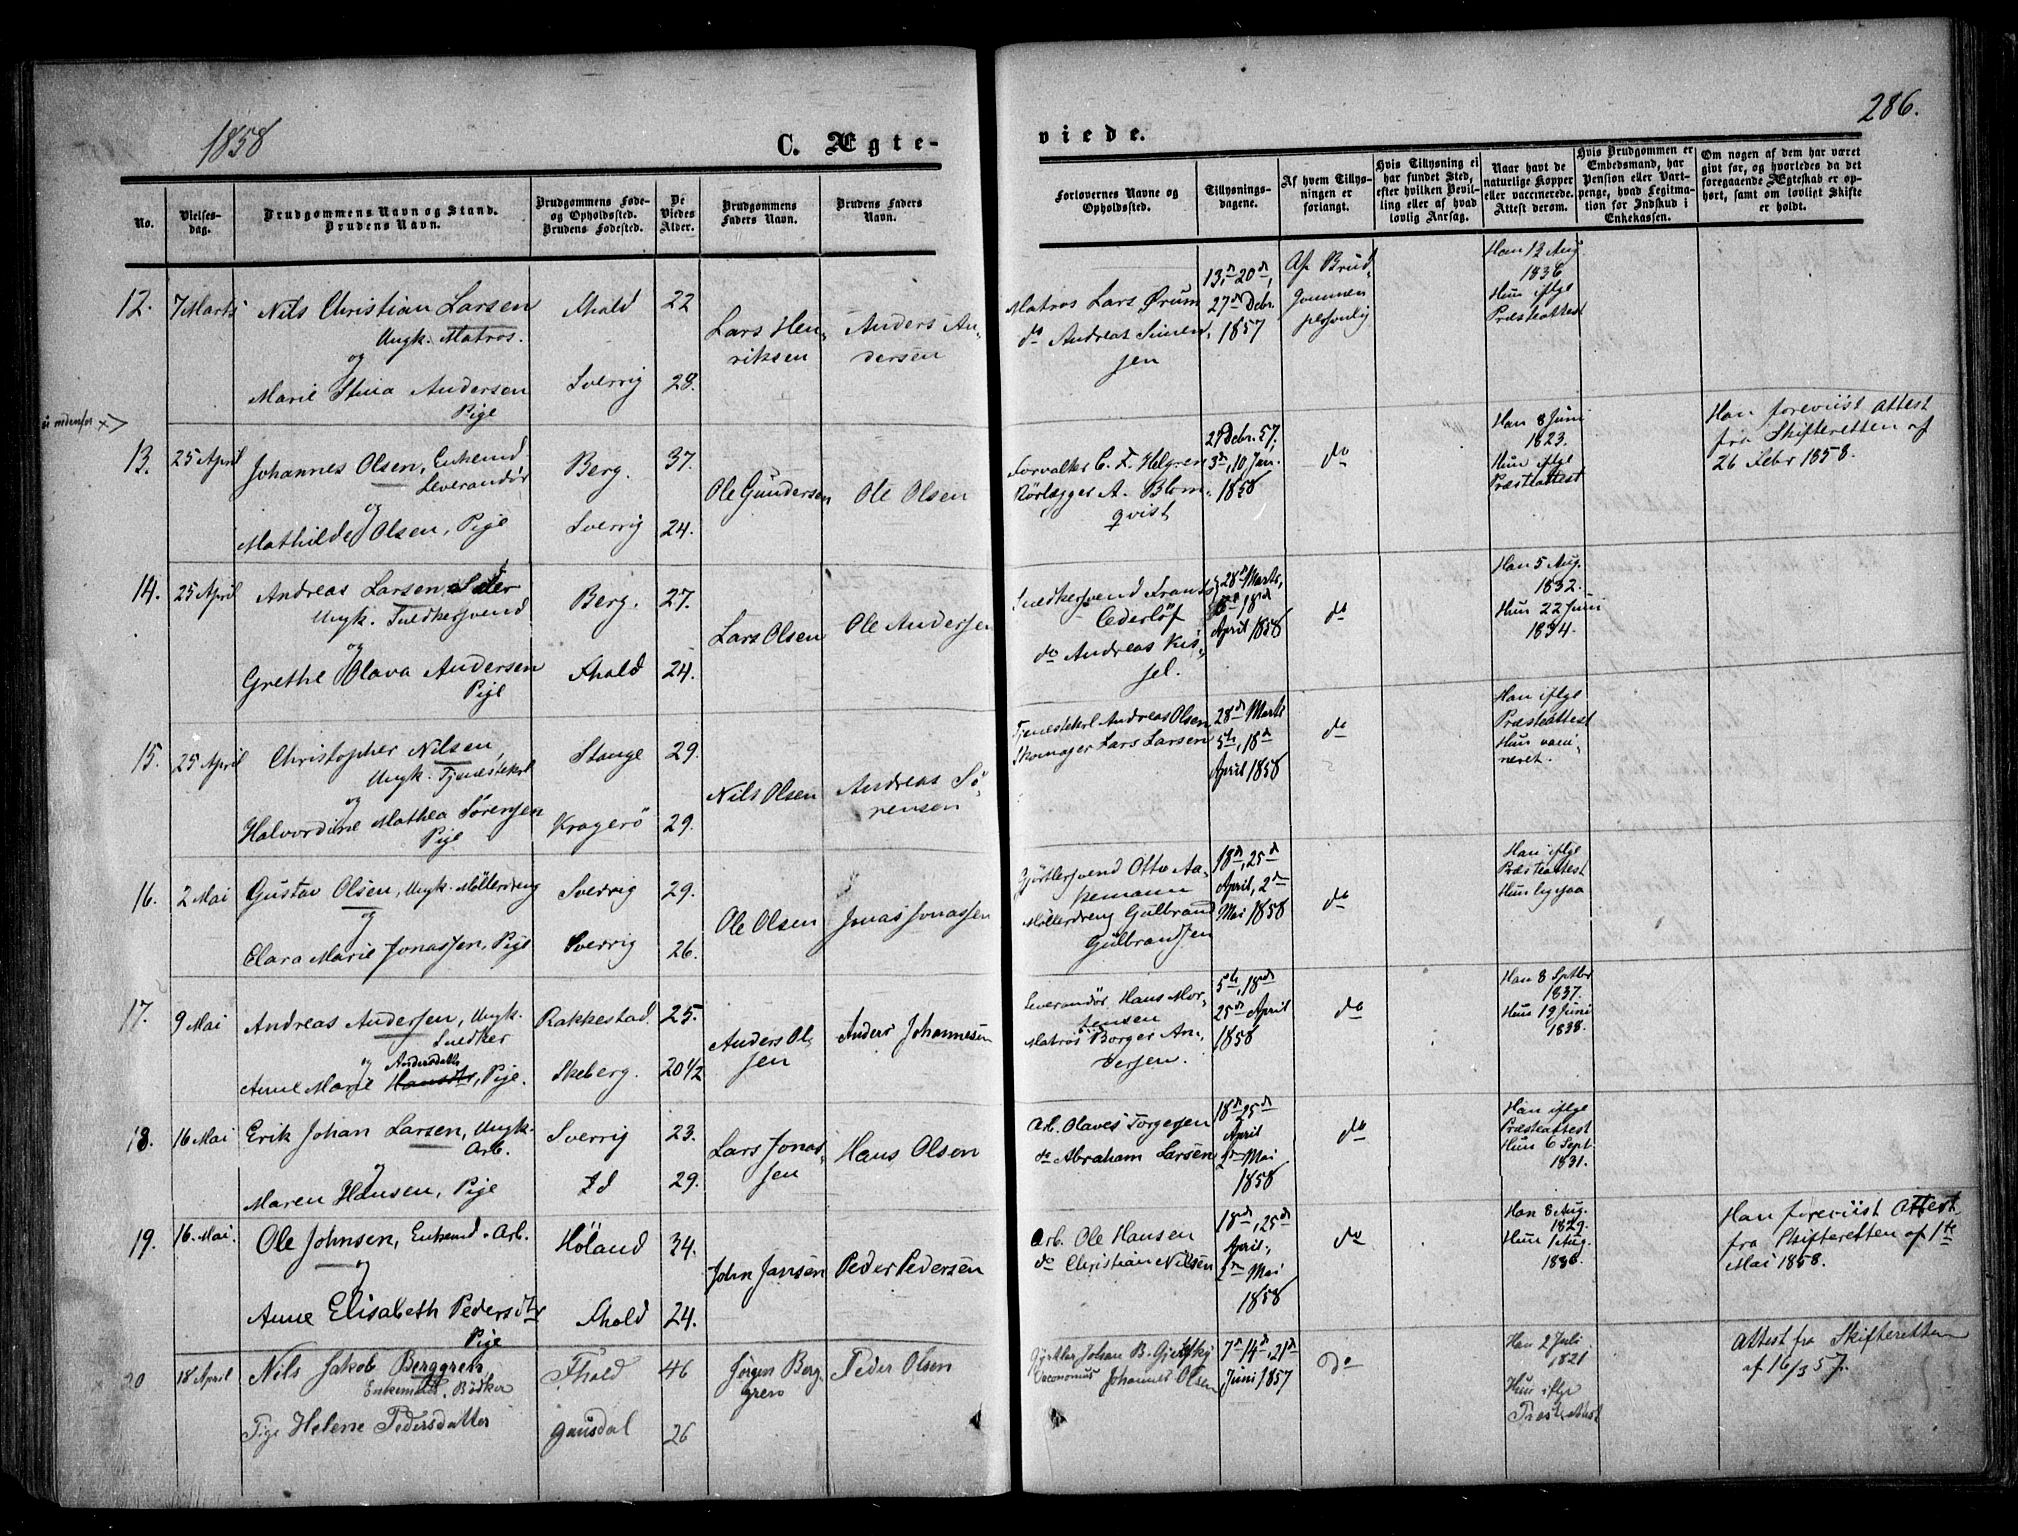 1858
286.
C. Ægte-
viede.
No.
Vielses-
dag.
Brudgommens Navn og Stand.
Brudens Navn.
Brudgommens Føde-
og Opholdssted.
Brudens Fødested.
De
Viedes
Alder.
Brudgommens
Faders Navn.
Brudens Faders
Navn.
Forlovernes Navne og
Opholdssted.
Tillysnings-
dagene.
Af hvem Tillys-
ningen er
forlangt.
Hvis Tillysning ei
har fundet Sted,
efter hvilken Bevil-
ling eller af hvad
lovlig Aarsag.
Naar havt de
naturlige Kopper
eller vaccinerede.
Attest derom.
Hvis Brudgommen er
Embedsmand, har
Pension eller Vart-
penge, hvad Legitima-
tion for Indskud i
Enkekassen.
Om nogen af dem har været
gift før, og hvorledes da det
foregaaende Ægteskab er op-
hørt, samt om lovligt Skifte
er holdt.
12.
7 Marts
Nils Christian Larsen
Ungk. Matros.
og
Marie Stina Andersen
Pige
Fhald
Sverrig
22
28.
Lars Hen-
riksen
Anders An-
dersen
Matros Lars Ørum
do Andreas Simen-
sen
13d, 20d,
27d Debr.
1857
Af Brud-
gommen
personlig
Han 12 Aug.
1836
Hun iflge
Præsteattest
si nedenfor x>
13.
25 April
Johannes Olsen, Enkemd
Leverandør
og
Mathilde Olsen, Pige
Berg.
Sverrig
37.
24.
Ole Gundersen
Ole Olsen
Forvalter C. F. Helgren
Rørlægger A. Blom-
qvist
27 Debr. 57,
3d, 10 Jan.
1858
do
Han 8 Juni
1823.
Hun iflge
Præsteattest
Han foreviist Attest
fra Skifteretten af
26 Febr 1858.
14.
25 April
Andreas Larsen
Ungk. Snedkersvend
og
Grethe Olava Andersen
Pige
Berg.
Fhald
27.
24.
Lars Olsen
Ole Andersen
Snedkersvend Frants
Cederlöf
do Andreas Kis-
sel.
28d Marts,
18d
April 1858
do
Han 5 Aug.
1832.
Hun 22 Juni
1834.
15.
25 April
Christopher Nilsen,
Ungk. Tjenestekrl
og
Halvordine Mathea Sørensen
Pige
Stange
Kragerö
29.
29.
Nils Olsen
Andreas Sö-
rensen
Tjenestekrl Andreas Olsen
Skomager Lars Larsen
28d Marts
5te, 18d
April 1858
do
Han iflge
Præsteattest
Hun vacci-
neret.
16.
2 Mai
Gustav Olsen, Ungk. Möllerdreng
og
Clara Marie Jonassen, Pige
Sverrig
Sverrig
29.
26.
Ole Olsen
Jonas Jonassen
Gjørtlersvend Otto Aa-
kemann
Möllerdreng Gulbrand
Gulbrandsen
18d, 25d
April, 2den
Mai 1858
do
Han iflge
Præsteattest
Hun ligesaa
17.
9 Mai
Andreas Andersen, Ungk.
Snedker
og Andersdatter
Anne Marie Hansdtr, Pige.
Rakkestad
Skeberg.
25.
20 1/2
Anders Ol-
sen
Anders Johannesen
Leverandør Hans Mor-
tensen
Matros Borger An-
dersen.
5te, 18d
25d April
1858
do
Han 8 Septbr
1837.
Hun 19 Juni
1838.
18.
16 Mai
Erik Johan Larsen, Ungk.
Arb.
og
Maren Hansen, Pige
Sverrig
Id
23.
29.
Lars Jonas-
sen
Hans Olsen
Arb. Olaves Torgersen
do Abraham Larsen
18d 25d
April
2den Mai
1858
do
Han iflge
Præsteattest
Hun 6 Sept.
1831.
19.
16 Mai.
Ole Johnsen, Enkemd. Arb.
og
Anne Elisabeth Pedersdtr
Pige
Höland
Fhald
34.
24.
John Jansen
Peder Pedersen
Arb. Ole Hansen
do Christian Nilsen
18d, 25d
April,
2den Mai
1858
do
Han 8 Aug.
1829.
Hun 1 Aug.
1836.
Han foreviist Attest
fra Skifteretten af 1te
Mai 1858.
x 20
18 April
Nils Jakob Berggren
Enkemand. Bödker
Pige Helene Pedersdatter
Fhald
Gausdal
46
26
Jørgen Berg-
gren
Peder Olsen
Gjørtler Johan B.
Oeconomus Johannes Olsen
7d, 14d, 21d
Juni 1857
Do
Han 2 Juli
1821
Hun iflge
Præsteattest
Attest fra Skifteretten
af 16/3 57.